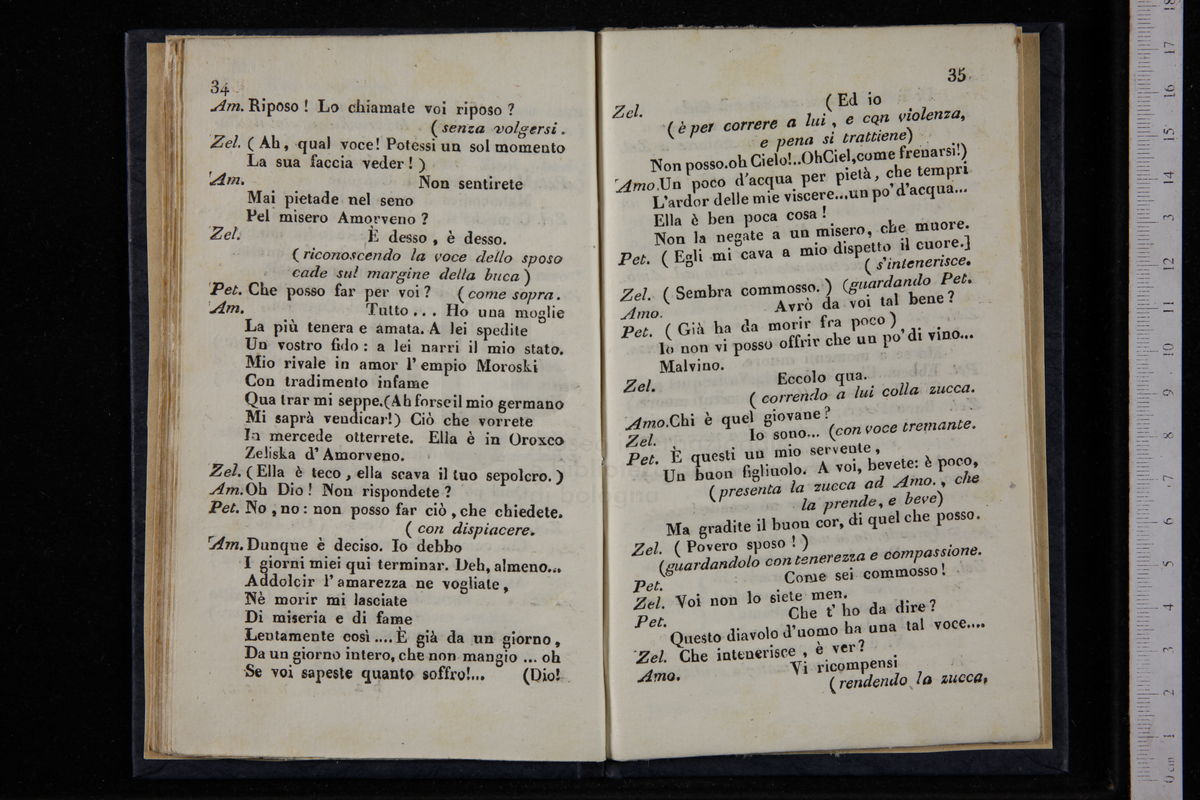 34
Am. Riposo ! Lo chiamate voi riposo ?
( senza volgersi .
Zel. ( Ah, qual voce! Potessi un sol momento
La sua faccia veder ! )
Am. Non sentirete
Mai pietade nel seno
Pel misero Amorveno ?
Zel. È desso , è desso.
( riconoscendo la voce dello sposo
cade sul margine della buca )
Pet. Che posso far per voi ? ( come sopra .
Am. Tutto . . . Ho una moglie
La più tenera e amata. A lei spedite
Un vostro fido : a lei narri il mio stato.
Mio rivale in amor l' empio Moroski
Con tradimento infame
Qua trar mi seppe.(Ah forse il mio germano
Mi saprà vendicar!) Ciò che vorrete
In mercede otterrete. Ella è in Oroxco
Zeliska d' Amorveno.
Zel. ( Ella è teco , ella scava il tuo sepolcro. )
Am. Oh Dio ! Non rispondete ?
Pet. No , no : non posso far ciò , che chiedete.
( con dispiacere.
Am. Dunque è deciso. Io debbo
I giorni miei qui terminar. Deh, almeno...
Addolcir l' amarezza ne vogliate ,
Nè morir mi lasciate
Di miseria e di fame
Lentamente così .... È già da un giorno ,
Da un giorno intero, che non mangio ... oh
Se voi sapeste quanto soffro!... (Dio!
35
Zel. ( Ed io
( è per correre a lui , e con violenza,
e pena si trattiene)
Non posso.oh Cielo!..Oh Ciel,come frenarsi!)
Amo. Un poco d'acqua per pietà, che tempri
L'ardor delle mie viscere...un po' d'acqua...
Ella è ben poca cosa !
Non la negate a un misero, che muore.
Pet. ( Egli mi cava a mio dispetto il cuore.]
( s'intenerisce.
Zel. ( Sembra commosso. ) (guardando Pet.
Amo. Avrò da voi tal bene ?
Pet. ( Già ha da morir fra poco )
Io non vi posso offrir che un po' di vino...
Malvino.
Zel. Eccolo qua.
( correndo a lui colla zucca.
Amo. Chi è quel giovane ?
Zel. Io sono... (con voce tremante.
Pet. È questi un mio servente ,
Un buon figliuolo. A voi, bevete: è poco,
(presenta la zucca ad Amo. , che
la prende, e beve)
Ma gradite il buon cor, di quel che posso.
Zel. ( Povero sposo ! )
(guardandolo con tenerezza e compassione.
Pet. Come sei commosso !
Zel. Voi non lo siete men.
Pet. Che t' ho da dire ?
Questo diavolo d'uomo ha una tal voce....
Zel. Che intenerisce , è ver ?
Amo. Vi ricompensi
( rendendo la zucca,